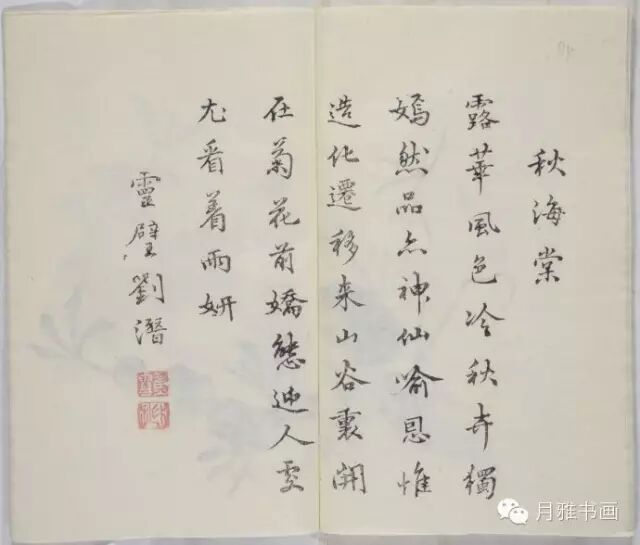 秋海棠
露華風色冷秋卉獨
嫣然品亦神仙喻恩惟
造化遷移来山谷裏開
在菊花前嬌態迎人處
尤看着雨妍
靈璧劉潛
月雅书画